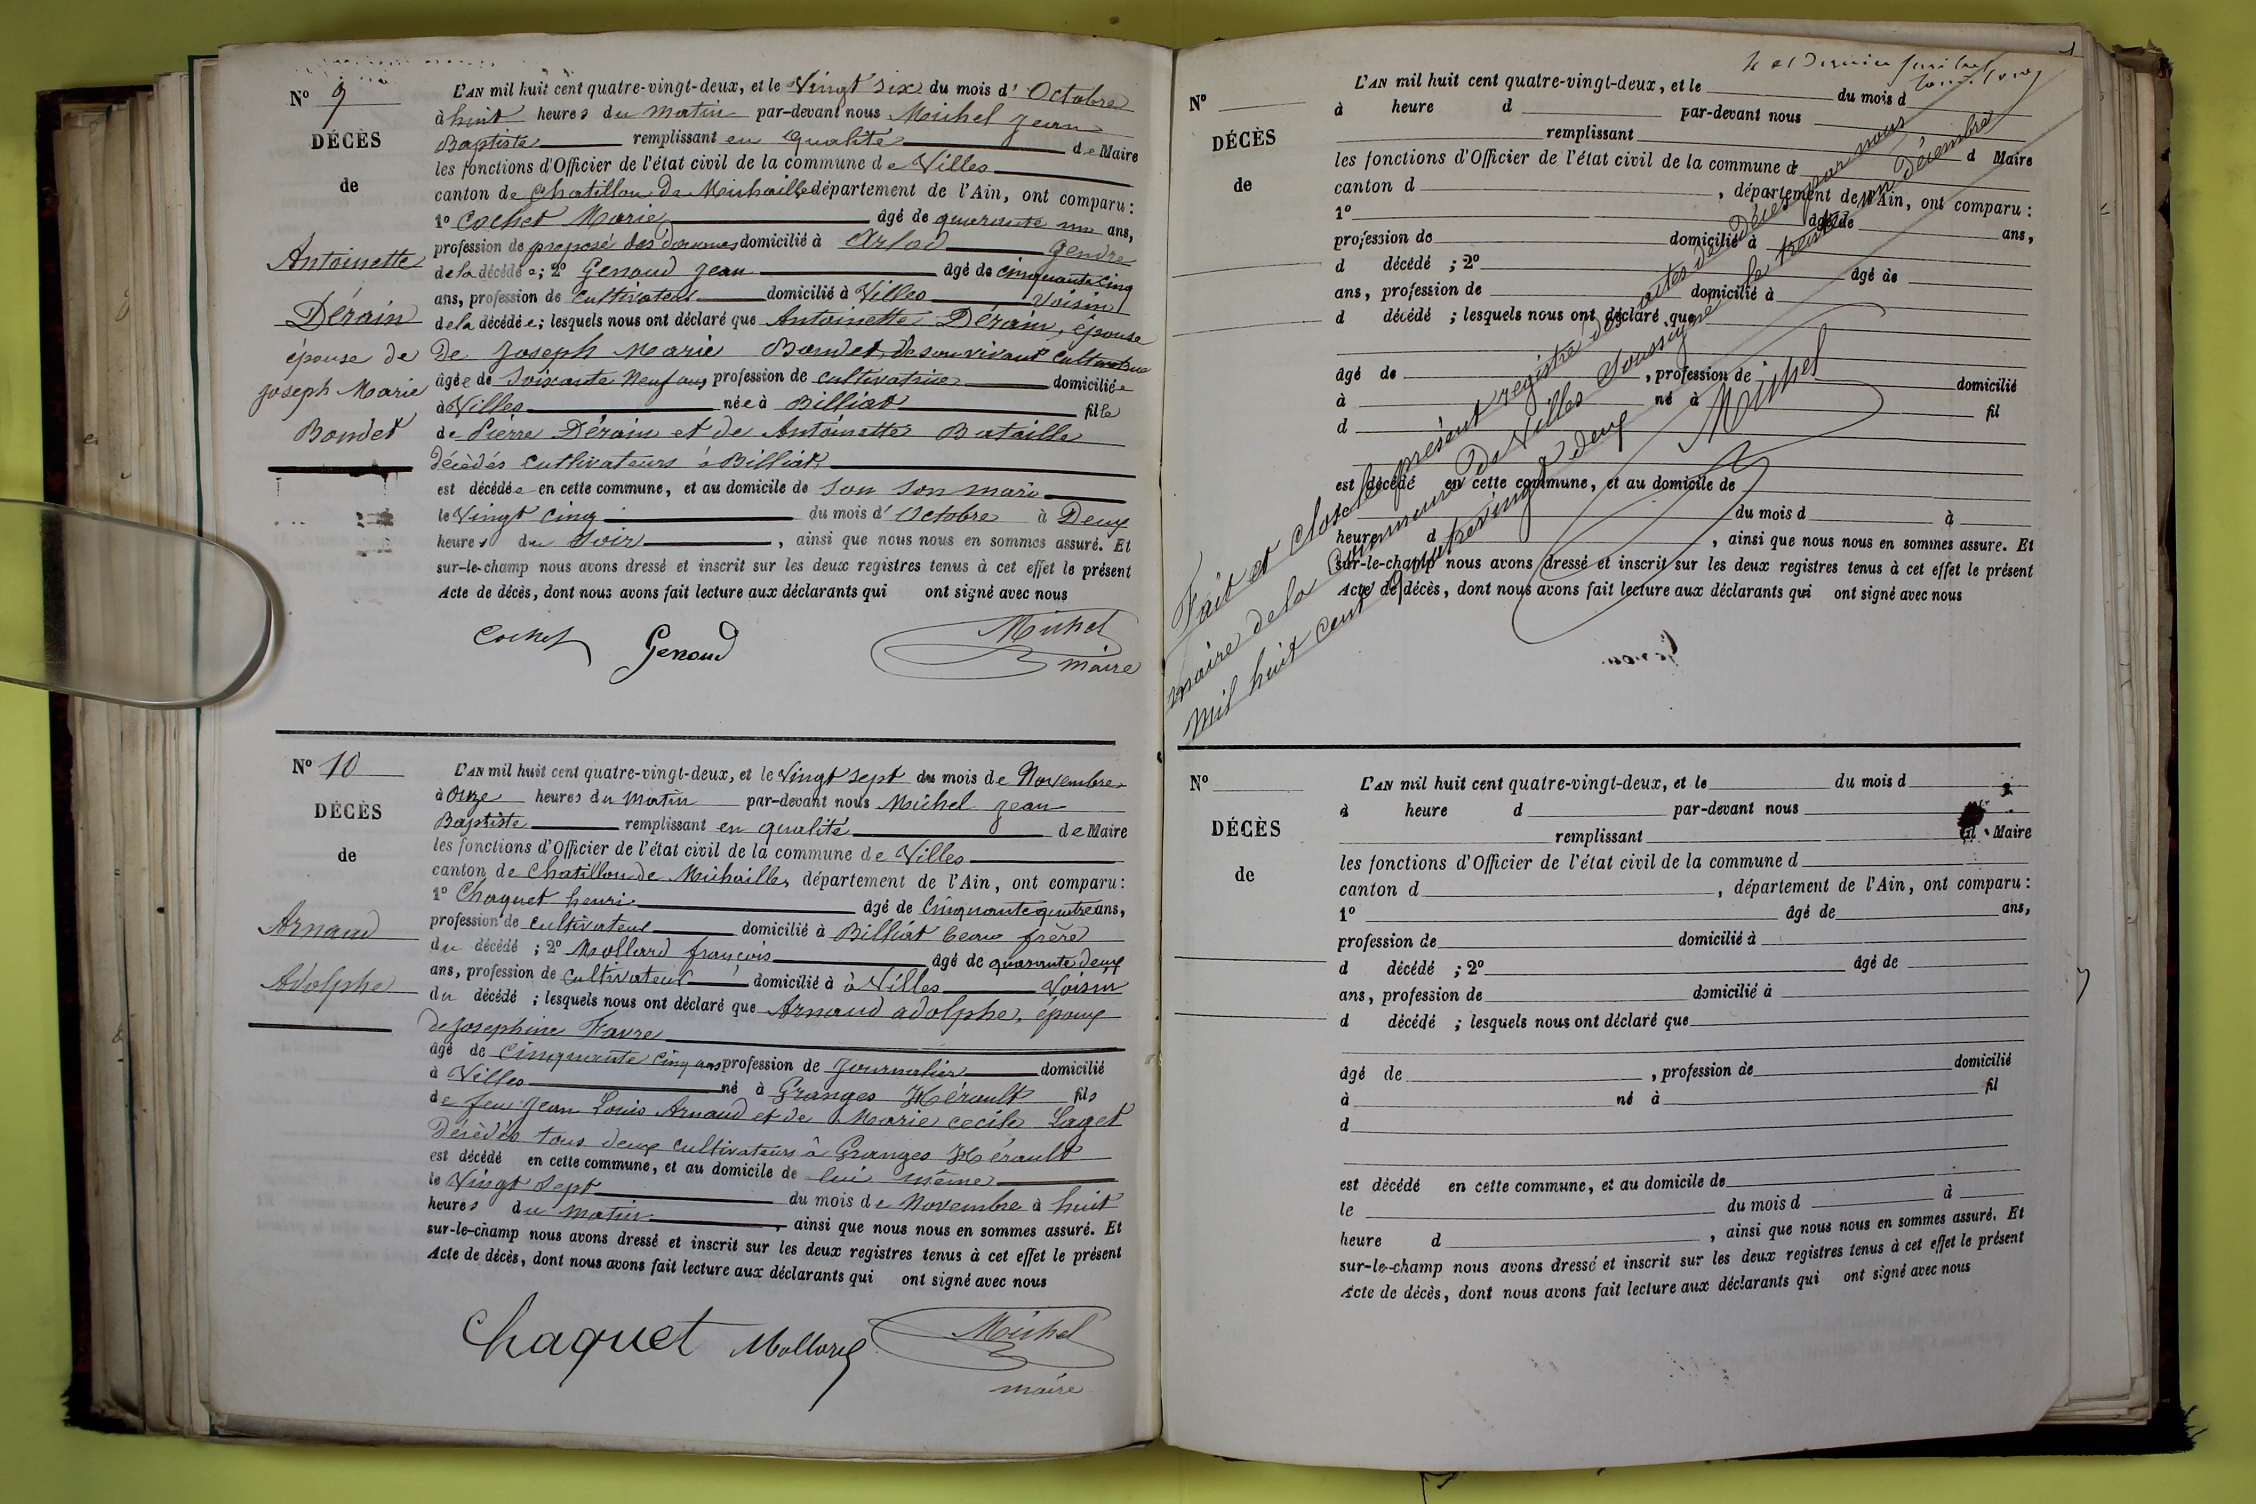 N° 9
DÉCÈS
de
Antoinette
Dérain
épouse de
Joseph Marie
Bondet
L'AN mil huit cent quatre-vingt-deux, et le Vingt six du mois d' Octobre
à huit heures du Matin par-devant nous Michel Jean
Baptiste remplissant en qualité de Maire
les fonctions d'Officier de l'état civil de la commune de Villes
canton de Chatillon de Michaille département de l'Ain, ont comparu :
1° Cochet Marie âgé de quarante un ans,
profession de préposé des douanes domicilié à Arlod gendre
de la décédée ; 2° Genoud Jean âgé de cinquante cinq
ans, profession de cultivateur domicilié à Villes Voisin
de la décédée ; lesquels nous ont déclaré que Antoinette Dérain, épouse
de Joseph Marie Bondet, de son vivant cultivatrice
âgée de Soixante Neuf ans, profession de cultivatrice domiciliée
à Villes née à Billiat fille
de Pierre Dérain et de Antoinette Bataille
décédés cultivateurs à Billiat
est décédée en cette commune, et au domicile de son son mari
le Vingt cinq du mois d' Octobre à Deux
heures du Soir, ainsi que nous nous en sommes assuré. Et
sur-le-champ nous avons dressé et inscrit sur les deux registres tenus à cet effet le présent
Acte de décès, dont nous avons fait lecture aux déclarants qui ont signé avec nous
Cochet Genoud Michel
maire
N° 10
DÉCÈS
de
Arnaud
Adolphe
L'AN mil huit cent quatre-vingt-deux, et le Vingt sept du mois de Novembre
à Onze heures du Matin par-devant nous Michel Jean
Baptiste remplissant en qualité de Maire
les fonctions d'Officier de l'état civil de la commune de Villes
canton de Chatillon de Michaille, département de l'Ain, ont comparu :
1° Chaquet henri âgé de Cinquante quatre ans,
profession de cultivateur domicilié à Billiat beau frère
du décédé ; 2° Mollard françois âgé de quarante deux
ans, profession de cultivateur domicilié à à Villes Voisin
du décédé ; lesquels nous ont déclaré que Arnaud adolphe, époux
de Josephine Favre
âgé de Cinquante Cinq ans profession de Journalier domicilié
à Villes né à Granges Hérault fils
de feu Jean Louis Arnaud et de Marie cecile Laget
Décédés tous deux cultivateurs à Granges Hérault
est décédé en cette commune, et au domicile de lui même
le Vingt Sept du mois de Novembre à huit
heures du Matin, ainsi que nous nous en sommes assuré. Et
sur-le-champ nous avons dressé et inscrit sur les deux registres tenus à cet effet le présent
Acte de décès, dont nous avons fait lecture aux déclarants qui ont signé avec nous
Chaquet Mollard Michel
maire
N°
DÉCÈS
de
L'AN mil huit cent quatre-vingt-deux, et le du mois d
à heure d par-devant nous
remplissant d Maire
les fonctions d'Officier de l'état civil de la commune d
canton d , département de l'Ain, ont comparu :
1° âgé de ans,
profession de domicilié à
d décédé ; 2° âgé de
ans, profession de domicilié à
d décédé ; lesquels nous ont déclaré que
âgé de , profession de domicilié
à né à fil
d
est décédé en cette commune, et au domicile de
du mois d à
heure d , ainsi que nous nous en sommes assuré. Et
sur-le-champ nous avons dressé et inscrit sur les deux registres tenus à cet effet le présent
Acte de décès, dont nous avons fait lecture aux déclarants qui ont signé avec nous
Fait et clos le présent registre des actes de Décès par nous
maire de la Commune de Villes Soussigné le trente un Décembre
Mil huit cent quatre vingt deux
Michel
N°
DÉCÈS
de
L'AN mil huit cent quatre-vingt-deux, et le du mois d
à heure d par-devant nous
remplissant d Maire
les fonctions d'Officier de l'état civil de la commune d
canton d , département de l'Ain, ont comparu :
1° âgé de ans,
profession de domicilié à
d décédé ; 2° âgé de
ans, profession de domicilié à
d décédé ; lesquels nous ont déclaré que
âgé de , profession de domicilié
à né à fil
d
est décédé en cette commune, et au domicile de
le du mois d à
heure d , ainsi que nous nous en sommes assuré. Et
sur-le-champ nous avons dressé et inscrit sur les deux registres tenus à cet effet le présent
Acte de décès, dont nous avons fait lecture aux déclarants qui ont signé avec nous